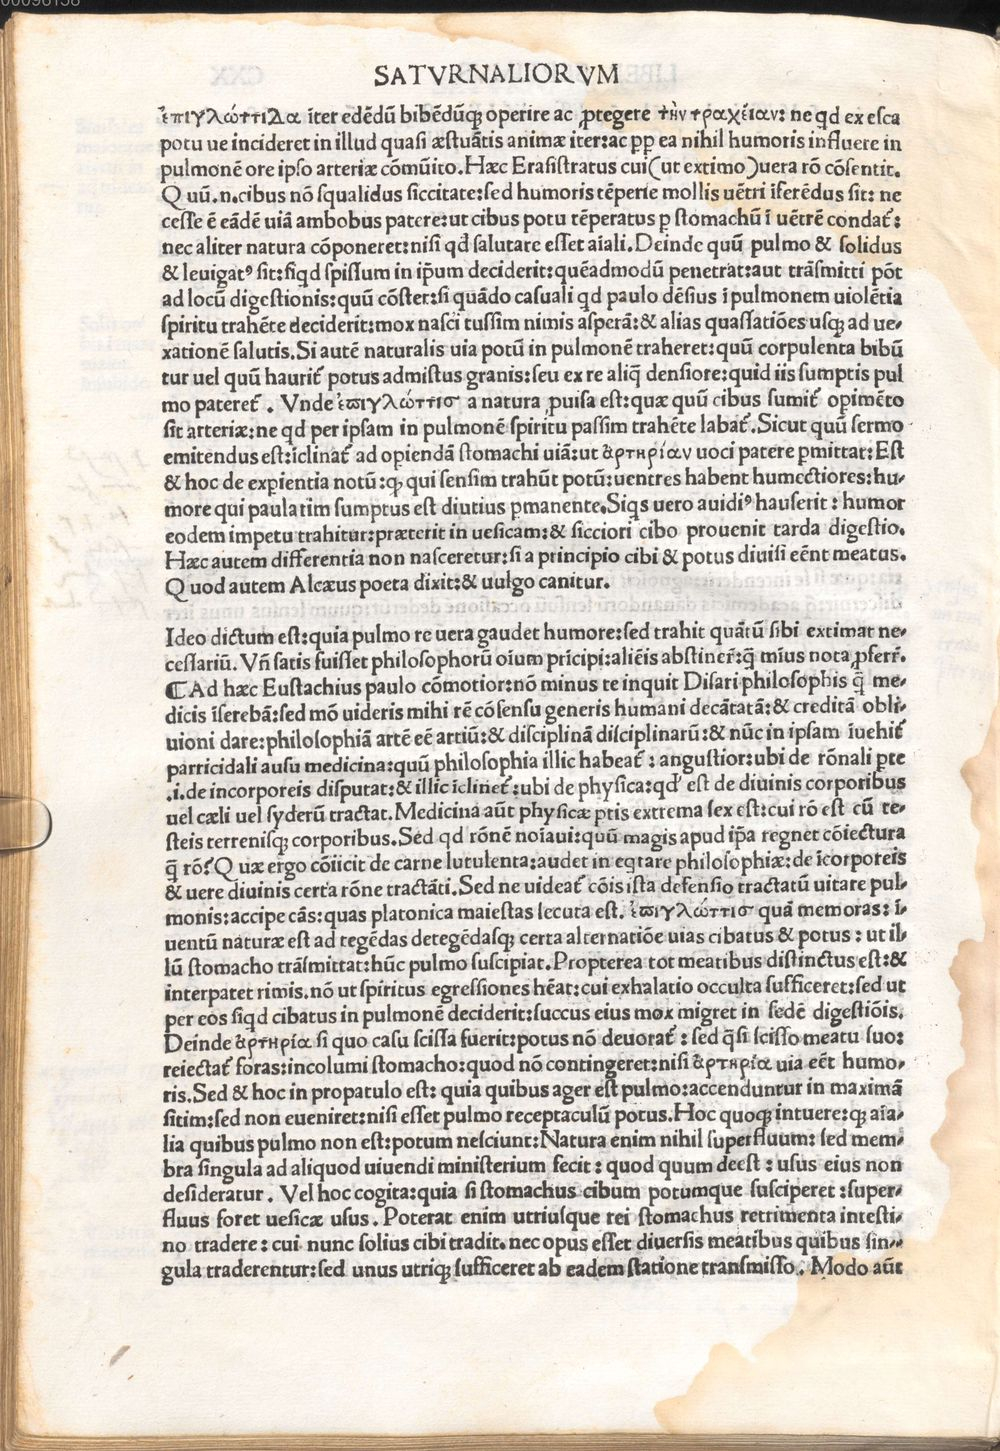 00096158
SATVRNALIORVM
ἐπιγλώττιδα īter edēdū bibēdūq; operire ac ꝓtegere τὴν τραχείαν: ne qd ex esca
potu ue incideret in illud quasi æstuātis animæ iter: ac ꝓp ea nihil humoris influere in
pulmonē ore ipso arteriæ cōmūito. Hæc Erasistratus cui (ut extimo) uera rō cōsentit.
Quū.n.cibus nō squalidus siccitate: sed humoris tēperie mollis uētri īferēdus sit: ne
cesse ē eādē uiā ambobus patere: ut cibus potu tēperatus p stomachū ī uētrē condaƭ:
nec aliter natura cōponeret: nisi qđ salutare esset aīali. Deinde quū pulmo & solidus
& leuigatꝰ sit: siqd spissum in ip̄um deciderit: quēadmodū penetrat: aut trāsmitti pōt
ad locū digestionis: quū cōstet: si quādo casuali qd paulo dēsius ī pulmonem uiolētia
spiritu trahēte deciderit: mox nasci tussim nimis asperā: & alias quassatiōes usq; ad ue-
xationē salutis. Si autē naturalis uia potū in pulmonē traheret: quū corpulenta bibū
tur uel quū hauriƭ potus admistus granis: seu ex re aliq̄ densiore: quid iis sumptis pul
mo patereƭ. Vnde ἐπιγλώττισ a natura ꝓuisa est: quæ quū cibus sumiƭ opimēto
sit arteriæ: ne qd per ipsam in pulmonē spiritu passim trahēte labaƭ. Sicut quū sermo
emitendus est: īclinaƭ ad opiendā stomachi uiā: ut ἀρτηρίαν uoci patere pmittat: Est
& hoc de expientia notū: q; qui sensim trahūt potū: uentres habent humectiores: hu-
more qui paulatim sumptus est diutius pmanente. Siqs uero auidiꝰ hauserit: humor
eodem impetu trahitur: præterit in uesicam: & sicciori cibo prouenit tarda digestio.
Hæc autem differentia non nasceretur: si a principio cibi & potus diuisi eēnt meatus.
Quod autem Alcæus poeta dixit: & uulgo canitur.
Ideo dictum est: quia pulmo re uera gaudet humore: sed trahit quātū sibi extimat ne-
cessariū. Vn̄ satis fuisset philosophorū oīum prīcipi: aliēis abstiner̄: q̄ mīus nota ꝓferr̄.
¶ Ad hæc Eustachius paulo cōmotior: nō minus te inquit Disari philosophis q̄ me-
dicis īserebā: sed mō uideris mihi rē cōsensu generis humani decātatā: & creditā obli-
uioni dare: philosophiā artē eē artiū: & disciplinā disciplinarū: & nūc in ipsam īuehiƭ
parricidali ausu medicina: quū philosophia illic habeaƭ: angustior: ubi de rōnali pte
.i. de incorporeis disputat: & illic īclineƭ: ubi de physica: qđ est de diuinis corporibus
uel cæli uel syderū tractat. Medicina aūt physicæ ptis extrema fex est: cui rō est cū te-
steis terrenisq; corporibus. Sed qd rōnē noīaui: quū magis apud ip̄a regnet cōiectura
q̄ rō? Quæ ergo cōiicit de carne lutulenta: audet ineqtare philosophiæ: de īcorporeis
& uere diuinis certa rōne tractāti. Sed ne uideaƭ cōis ista defensio tractatū uitare pul-
monis: accipe cās: quas platonica maiestas secuta est. ἐπιγλώττισ quā memoras: ī-
uentū naturæ est ad tegēdas detegēdasq; certa alternatiōe uias cibatus & potus: ut il-
lū stomacho trāsmittat: hūc pulmo suscipiat. Propterea tot meatibus distinctus est: &
interpatet rimis. nō ut spiritus egressiones hēat: cui exhalatio occulta sufficeret: sed ut
per eos siqd cibatus in pulmonē deciderit: succus eius mox migret in sedē digestiōis.
Deinde ἀρτηρία si quo casu scissa fuerit: potus nō deuoraƭ: sed q̄si scisso meatu suo:
reiectaƭ foras: incolumi stomacho: quod nō contingeret: nisi ἀρτηρία uia eēt humo-
ris. Sed & hoc in propatulo est: quia quibus ager est pulmo: accenduntur in maximā
sitim: sed non eueniret: nisi esset pulmo receptaculū potus. Hoc quoq; intuere: q; aīa-
lia quibus pulmo non est: potum nesciunt: Natura enim nihil superfluum: sed mem-
bra singula ad aliquod uiuendi ministerium fecit: quod quum deest: usus eius non
desideratur. Vel hoc cogita: quia si stomachus cibum potumque susciperet: super-
fluus foret uesicæ usus. Poterat enim utriusque rei stomachus retrimenta intesti-
no tradere: cui nunc solius cibi tradit. nec opus esset diuersis meatibus quibus sin-
gula traderentur: sed unus utriq; sufficeret ab eadem statione transmisso. Modo aūt